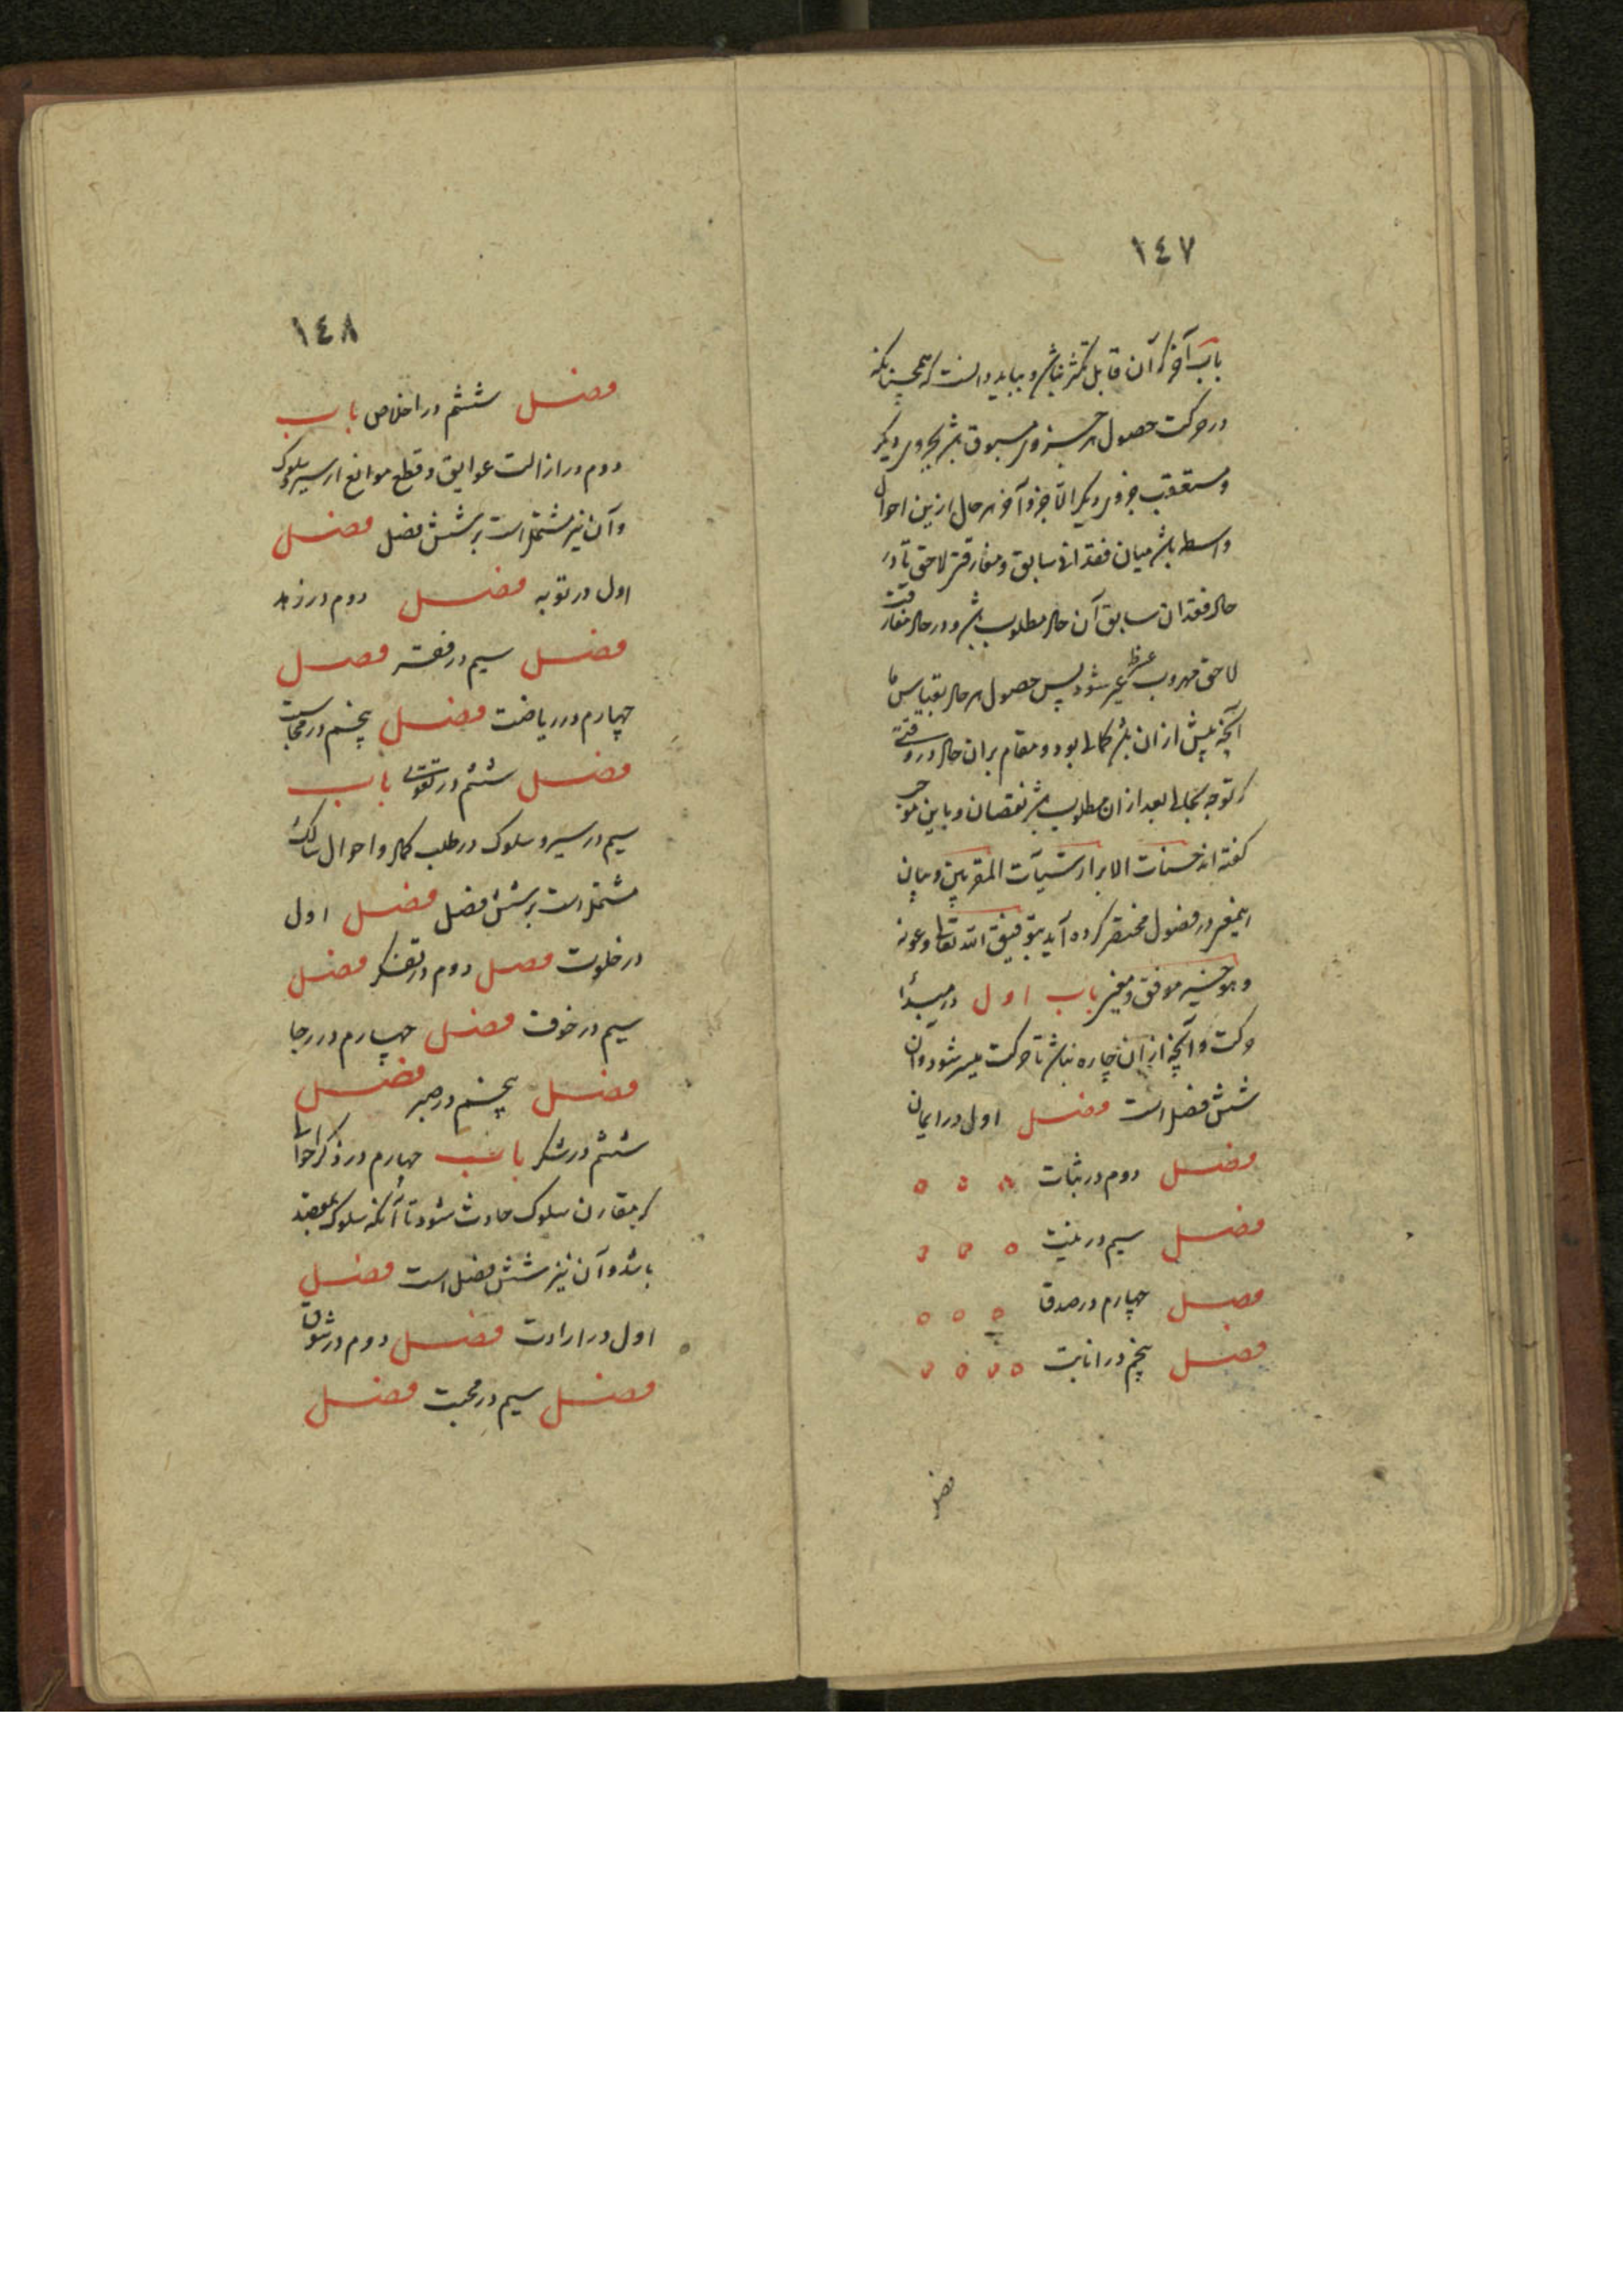 ١٤٧
باب آخر که آن قابل تکثر نباشد و بباید دانست که همچنانکه
در حرکت حصول هر جزوی مسبوق باشد بجزوی دیگر
و مستعقب جزوی دیگر الا جزو آخر هر حال ازین احوال
واسطه باشد میان فقدان سابق و مفارقتی لاحق تا در
حال فقدان سابق آن حال مطلوب باشد و در حال مفارقت
لاحق مهروب عنه شود پس حصول هر حال بقیاس با
آنچه پیش از ان باشد کمالی بود و مقام بران حال در وقتی
که توجه بکمالی بعد از ان مطلوب باشد نقصان و باین
گفته اند حسنات الابرار سیّآت المقربین و بیان
اینمعنی در فصول مختصر کرده آید بتوفیق الله تعالی و عونه
و هو خیر موفق و معین باب اول در مبدأ
حرکت و آنچه از ان چاره نباشد تا حرکت میسر شود و آن
شش فصل است فصل اول در ایمان
فصل دوم در ثبات
فصل سیم در نیت
فصل چهارم در صدق
فصل پنجم در انابت
فصل
١٤٨
فصل ششم در اخلاص باب
دوم در ازالت عوایق و قطع موانع از سیر و سلوک
و آن نیز مشتمل است بر شش فصل فصل
اول در توبه فصل دوم در زهد
فصل سیم در فقر فصل
چهارم در ریاضت فصل پنجم در محاسبت
فصل ششم در تقوی باب
سیم در سیر و سلوک در طلب کمال و احوال سالک
مشتمل است بر شش فصل فصل اول
در خلوت فصل دوم در تفکر فصل
سیم در خوف فصل چهارم در رجا
فصل پنجم در صبر فصل
ششم در شکر باب چهارم در ذکر احوالی
که مقارن سلوک حادث شود تا آنکه سلوک بمقصد
باشد و آن نیز شش فصل است فصل
اول در ارادت فصل دوم در شوق
فصل سیم در محبت فصل